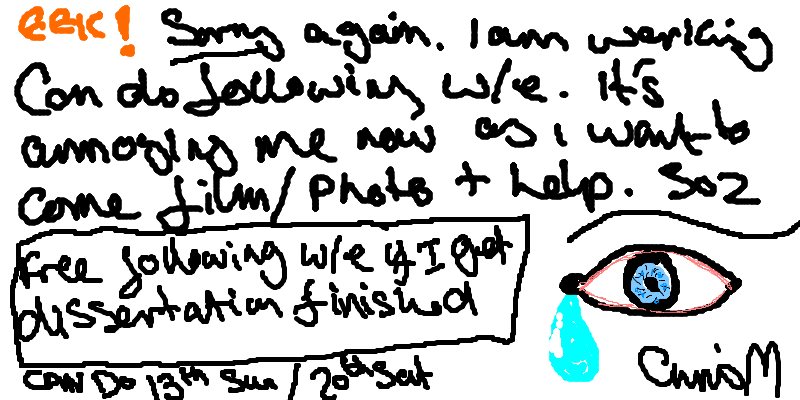 EEK! Sorry again. I am working
Can do following w/e. it's
annoying me now as i want to
come film/photo + help. Soz
Free following w/e if I get
dissertation finished
CAN DO 13th Sun / 20th Sat
ChrisM